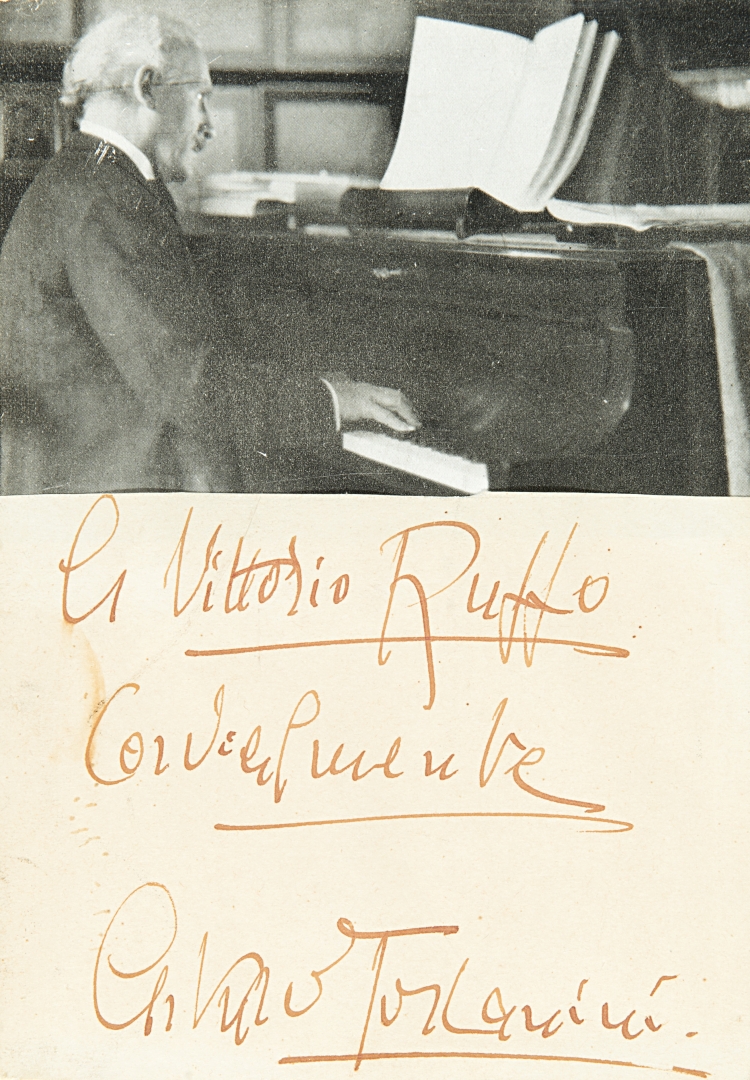 A Vittorio Ruffo
Cordialmente
Arturo Toscanini.